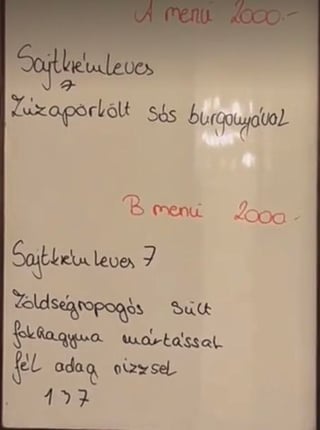 A menü 2000.-
Sajtkrémleves
7
Zúzapörkölt sós burgonyával
B menü 2000.-
Sajtkrémleves 7
Zöldségropogós sült
fokhagyma mártással
fél adag rizzsel
1 3 7